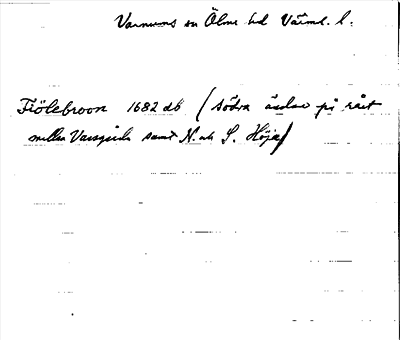 Varnums sn Ölme hd Värml. l.
Fiölebroon 1682 db (södra ändan på rået
mellan Varsgärde samt N. och S. Höje)